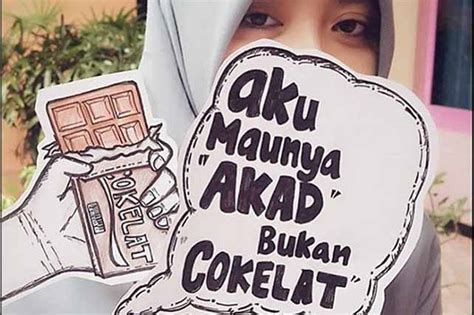 COKELAT
aku
Maunya
"AKAD"
Bukan
"COKELAT"